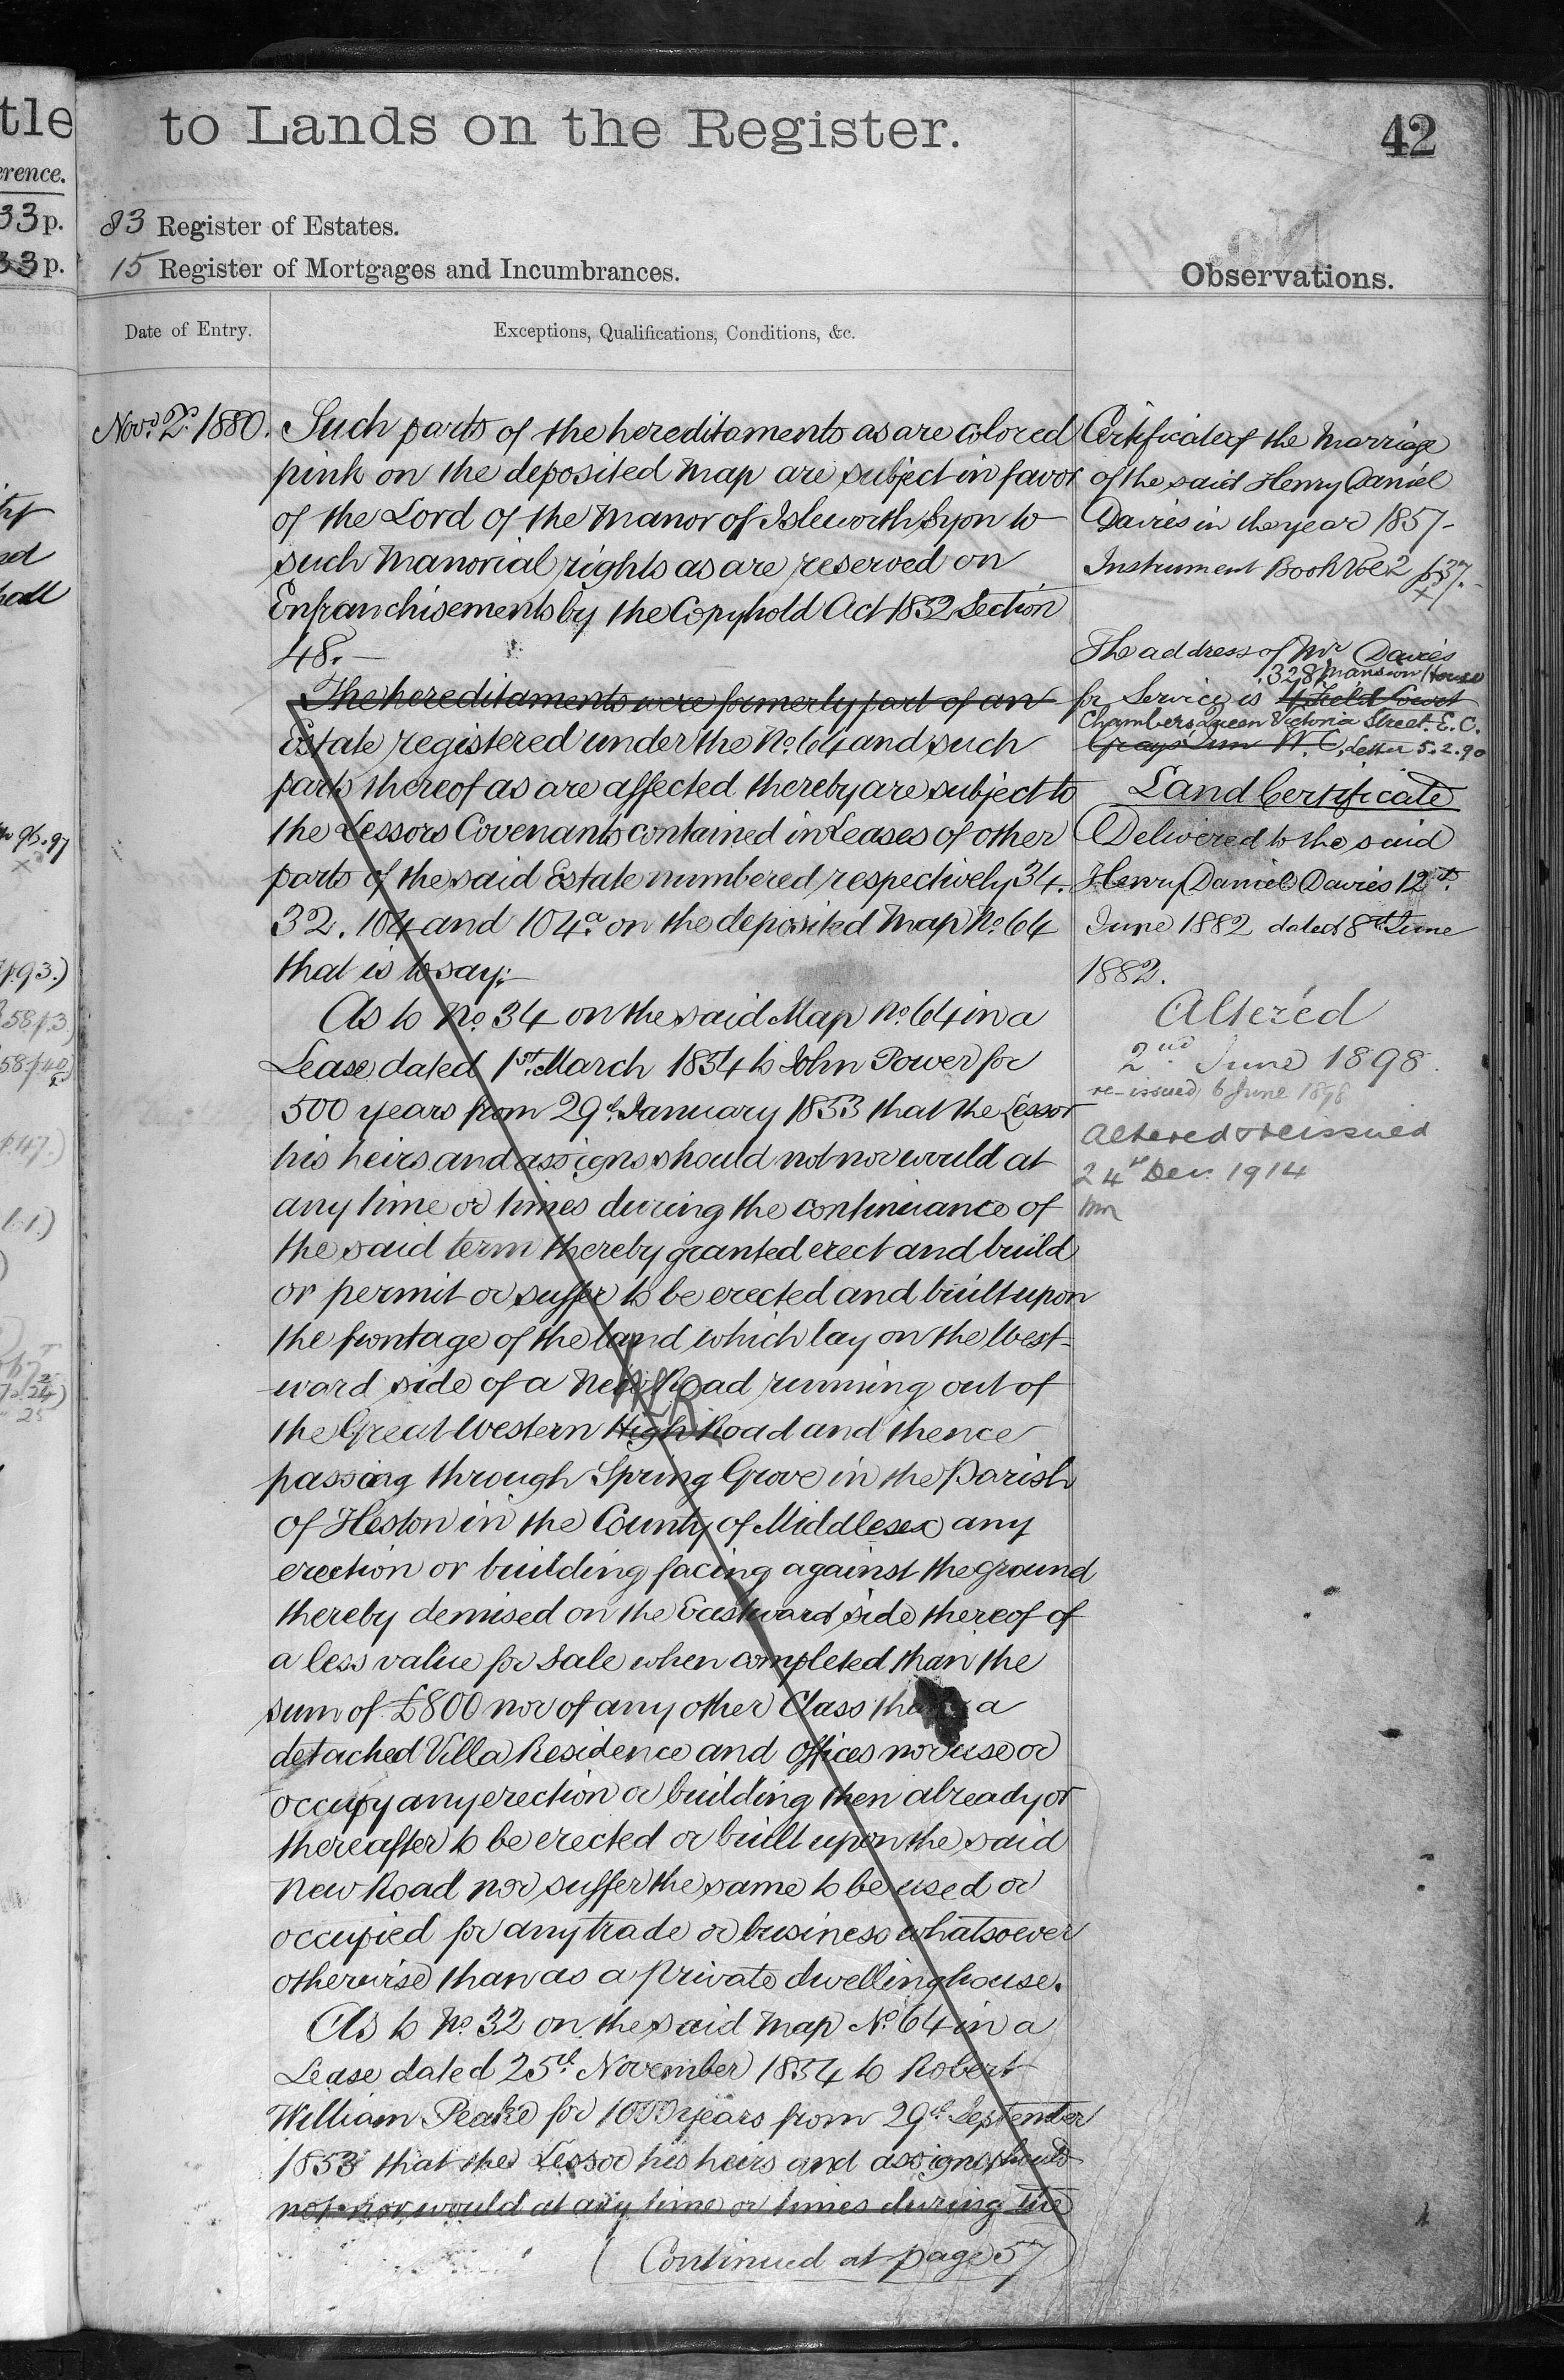 tle
erence.
33 p.
33 p.
to Lands on the Register.
42
83 Register of Estates.
15 Register of Mortgages and Incumbrances.
Observations.
Date of Entry.
Exceptions, Qualifications, Conditions, &c.
Novr. 2d. 1880.
Such parts of the hereditaments as are colored
pink on the deposited Map are subject in favor
of the Lord of the Manor of Isleworth Syon to
such Manorial rights as are reserved on
Enfranchisements by the Copyhold Act 1852 Section
48.—
The hereditaments were formerly part of an
Estate registered under the No. 64 and such
parts thereof as are affected thereby are subject to
the Lessors Covenants contained in Leases of other
parts of the said Estate numbered respectively 34.
32. 104 and 104a. on the deposited Map No. 64
that is to say:—
As to No. 34 on the said Map No. 64 in a
Lease dated 1st. March 1854 to John Power for
500 years from 29th. January 1853 that the Lessor
his heirs and assigns should not nor would at
any time or times during the continuance of
the said term thereby granted erect and build
or permit or suffer to be erected and built upon
the frontage of the land which lay on the West-
ward side of a New Road running out of
the Great Western High Road and thence
passing through Spring Grove in the Parish
of Heston in the County of Middlesex any
erection or building facing against the ground
thereby demised on the Eastward side thereof of
a less value for Sale when completed than the
sum of £800 nor of any other Class than a
detached Villa Residence and Offices nor use or
occupy any erection or building then already or
thereafter to be erected or built upon the said
New Road nor suffer the same to be used or
occupied for any trade or business whatsoever
otherwise than as a private dwellinghouse.
As to No. 32 on the said Map No. 64 in a
Lease dated 25th. November 1854 to Robert
William Peake for 1000 years from 29th. September
1853 that the Lessor his heirs and assigns should
not nor would at any time or times during the
(Continued at page 57)
Certificate of the Marriage
of the said Henry Daniel
Davies in the year 1857—
Instrument Book Vol 2 p 37.—
The address of Mr Davies
328 Mansion House
for Service is 4 Field Court
Chambers Queen Victoria Street. E.C.
Grays Inn W.C. Letter 5.2.90
Land Certificate
Delivered to the said
Henry Daniel Davies 12th.
June 1882 dated 8th June
1882.
Altered
2nd. June 1898.
re-issued 6 June 1898
Altered & reissued
24th Dec. 1914